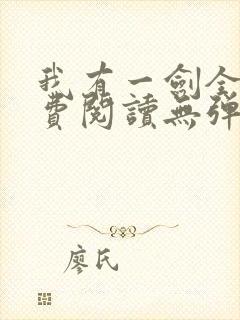 我有一劍全
費閱讀無彈
廖氏